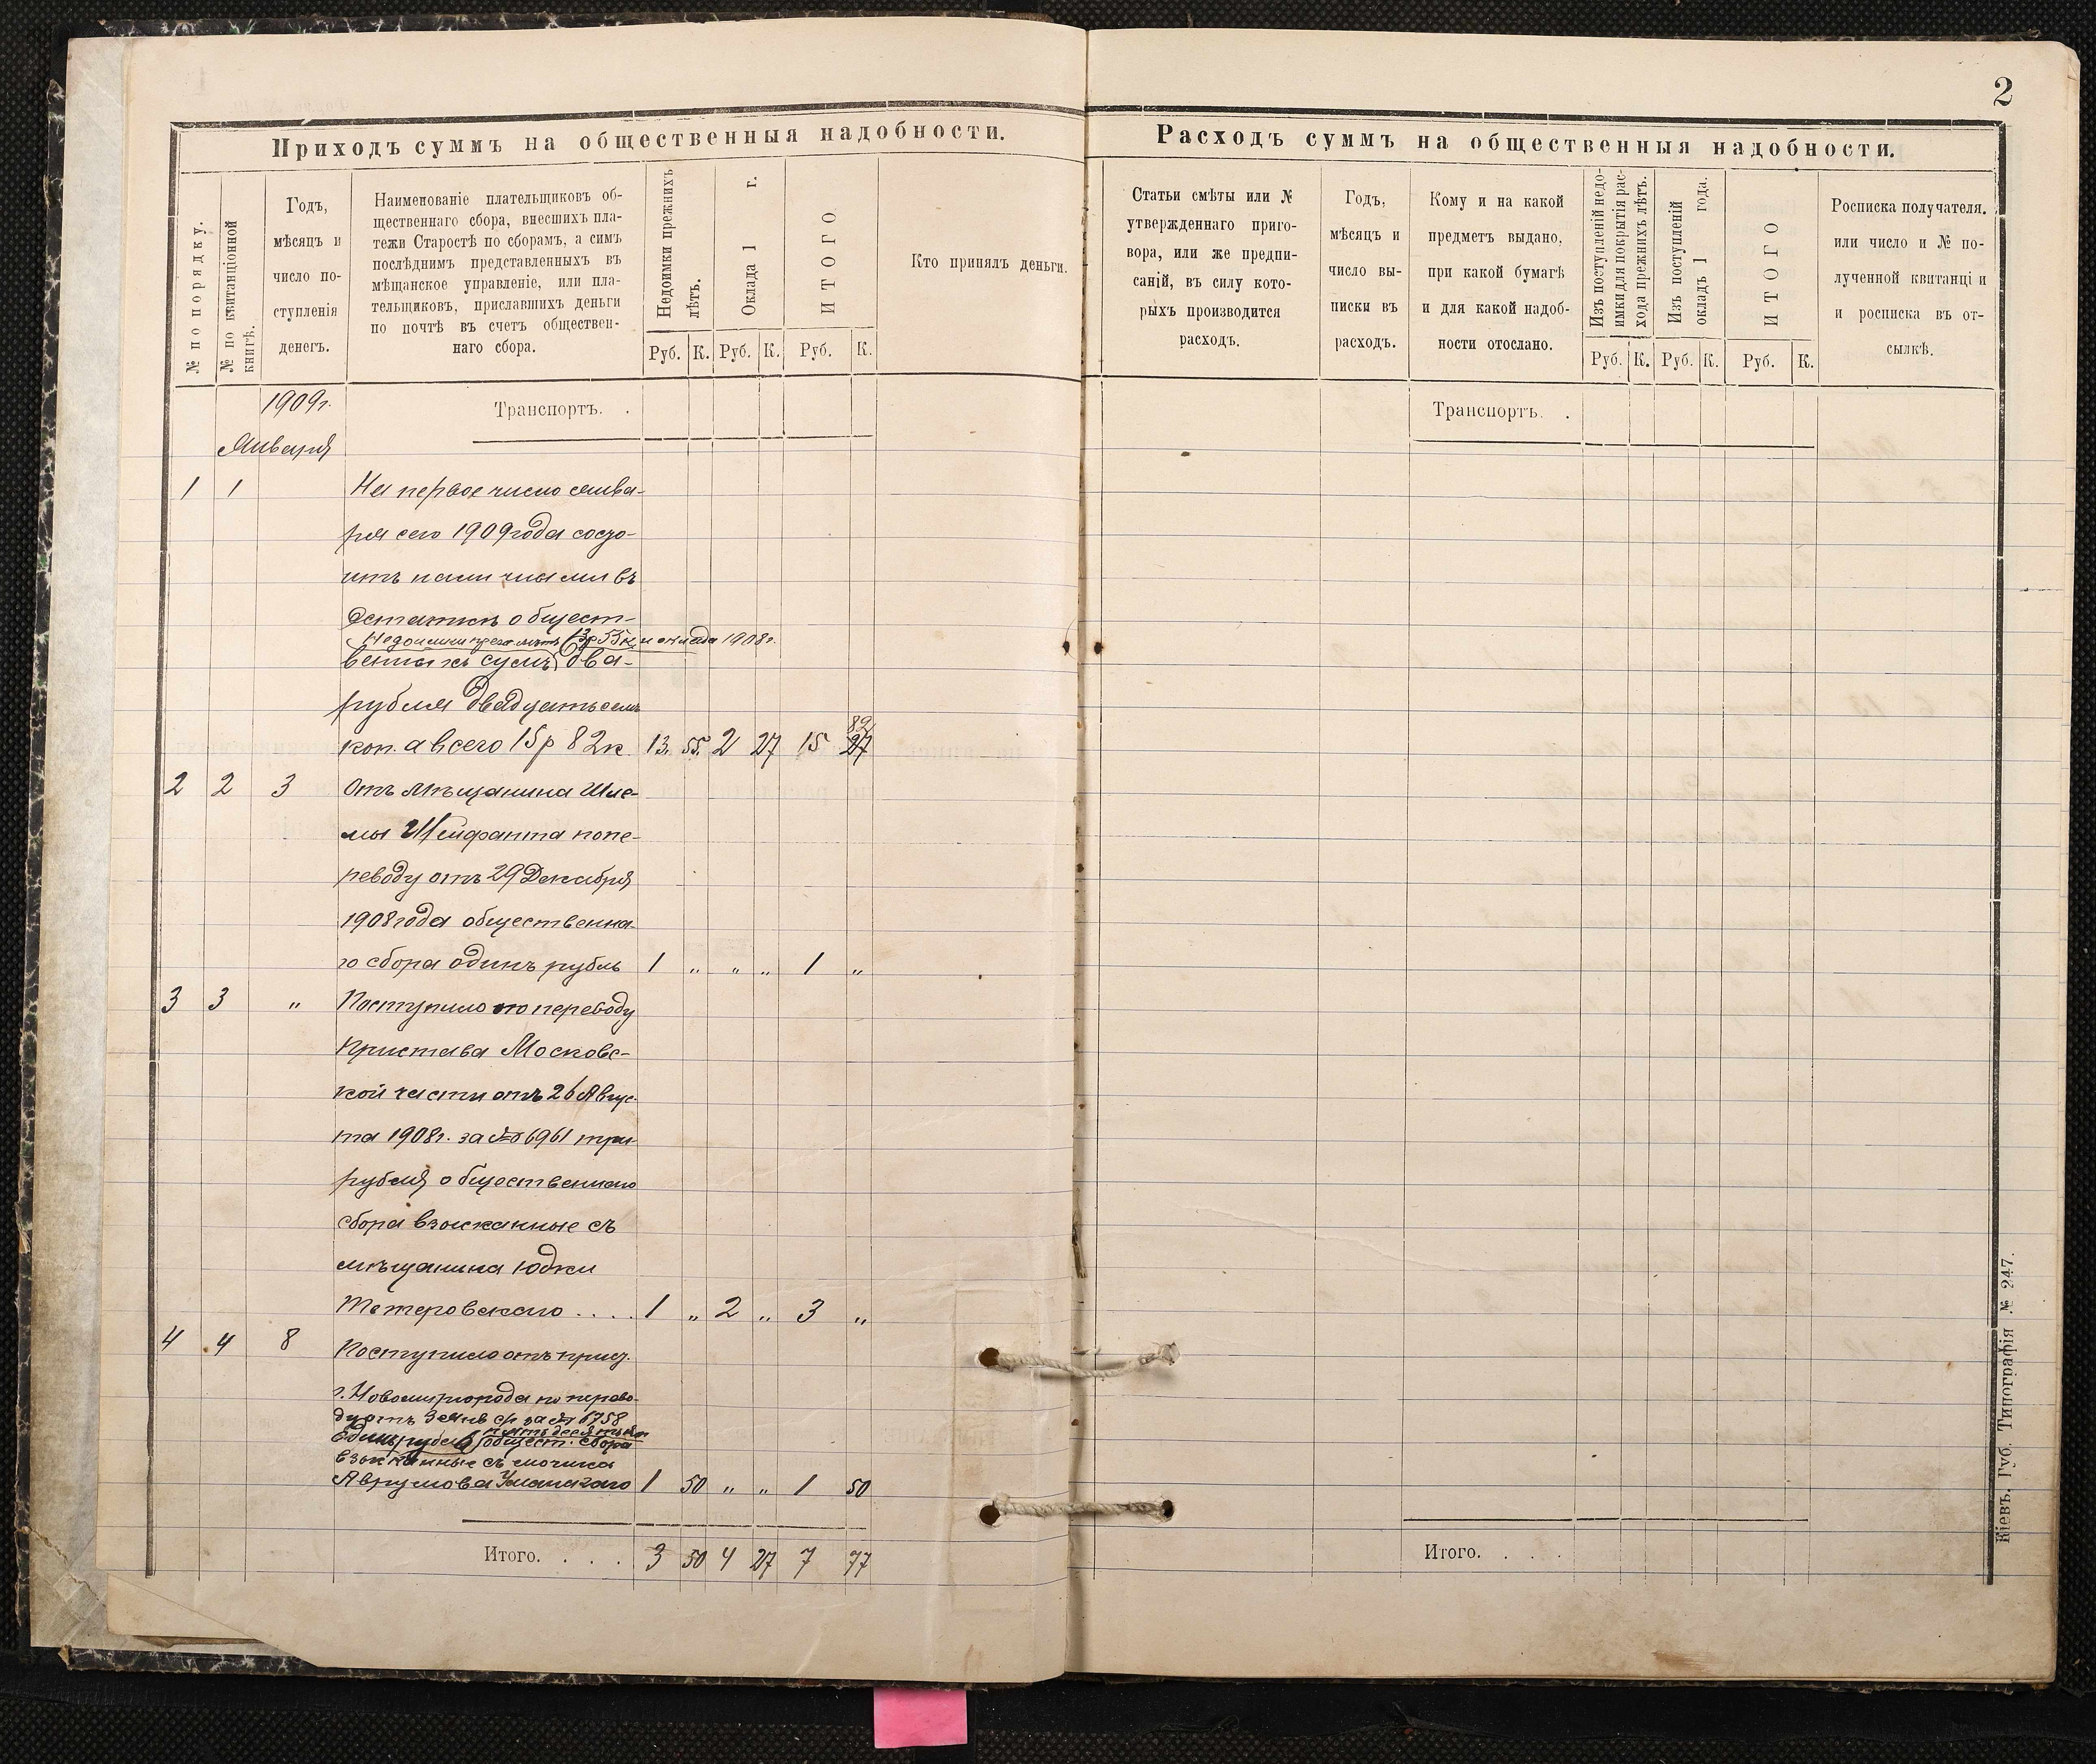 2
Приходъ суммъ на общественныя надобности.
№ по порядку.
№ по квитанціонной
книгѣ.
Годъ,
мѣсяцъ и
число по-
ступленія
денегъ.
Наименованіе плательщиковъ об-
щественнаго сбора, внесшихъ пла-
тежи Старостѣ по сборамъ, а симъ
послѣднимъ представленныхъ въ
мѣщанское управленіе, или пла-
тельщиковъ, приславшихъ деньги
по почтѣ въ счетъ обществен-
наго сбора.
Недоимки прежнихъ
лѣтъ.
Оклада 1 г.
ИТОГО
Кто принялъ деньги.
Руб. К. Руб. К. Руб. К.
1909г. Транспортъ. .
Января
1 1 На первое число янва-
ря сего 1909 года состо-
итъ наличнами въ
остатки общест-
недоимки преж. лѣтъ 13р 55к и оклада 1908г.
венныхъ сумъ два-
рубля двадцать семь
коп. а всего 15р 82к 13. 55. 2 27 15 82
27
2 2 3 Отъ мѣщанина Шле-
мы Шейфанта попе-
реводу отъ 29 Декабря
1908 года общественна-
го сбора одинъ рубль 1 „ „ „ 1 „
3 3 „ Поступило по переводу
Пристава Московс-
кой части отъ 26 Авгус-
та 1908г. за № 6961 три
рубля общественнаго
сбора взысканные съ
мѣщанина Юдки
Тетеровскаго . . . . 1 „ 2 „ 3 „
4 4 8 Поступило отъ прис.
г. Новомиргорода по перево-
ду отъ 3 Янв с/г за № 6758
пятьдесятъ коп
Одинъ рубль общест. сбора
взысканные съ
Аврумова Уманскаго 1 50 „ „ 1 50
Итого. . . . 3 50 4 27 7 77
Расходъ суммъ на общественныя надобности.
Статьи смѣты или №
утвержденнаго приго-
вора, или же предпи-
саній, въ силу кото-
рыхъ производится
расходъ.
Годъ,
мѣсяцъ и
число вы-
писки въ
расходъ.
Кому и на какой
предметъ выдано,
при какой бумагѣ
и для какой надоб-
ности отослано.
Изъ поступленій недо-
имки для покрытія рас-
хода прежнихъ лѣтъ.
Изъ поступленій
окладъ 1 года.
ИТОГО
Росписка получателя.
или число и № по-
лученной квитанці и
и росписка въ от-
сылкѣ.
Руб. К. Руб. К. Руб. К.
Транспортъ. .
Итого. . . .
Кіевъ. Губ. Типографія № 247.